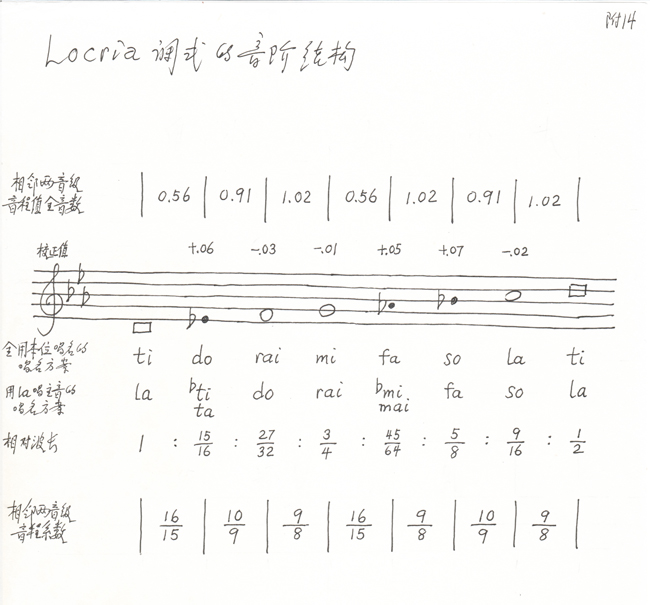 附14
Locria 调式的音阶结构
相邻两音级
音程值全音数 | 0.56 | 0.91 | 1.02 | 0.56 | 1.02 | 0.91 | 1.02 |
校正值 +.06 -.03 -.01 +.05 +.07 -.02
全用本位唱名的
唱名方案 ti do rai mi fa so la ti
用la唱主音的
唱名方案 la ♭ti do rai ♭mi fa so la
ta mai
相对波长 1 : 15/16 : 27/32 : 3/4 : 45/64 : 5/8 : 9/16 : 1/2
相邻两音级
音程系数 | 16/15 | 10/9 | 9/8 | 16/15 | 9/8 | 10/9 | 9/8 |